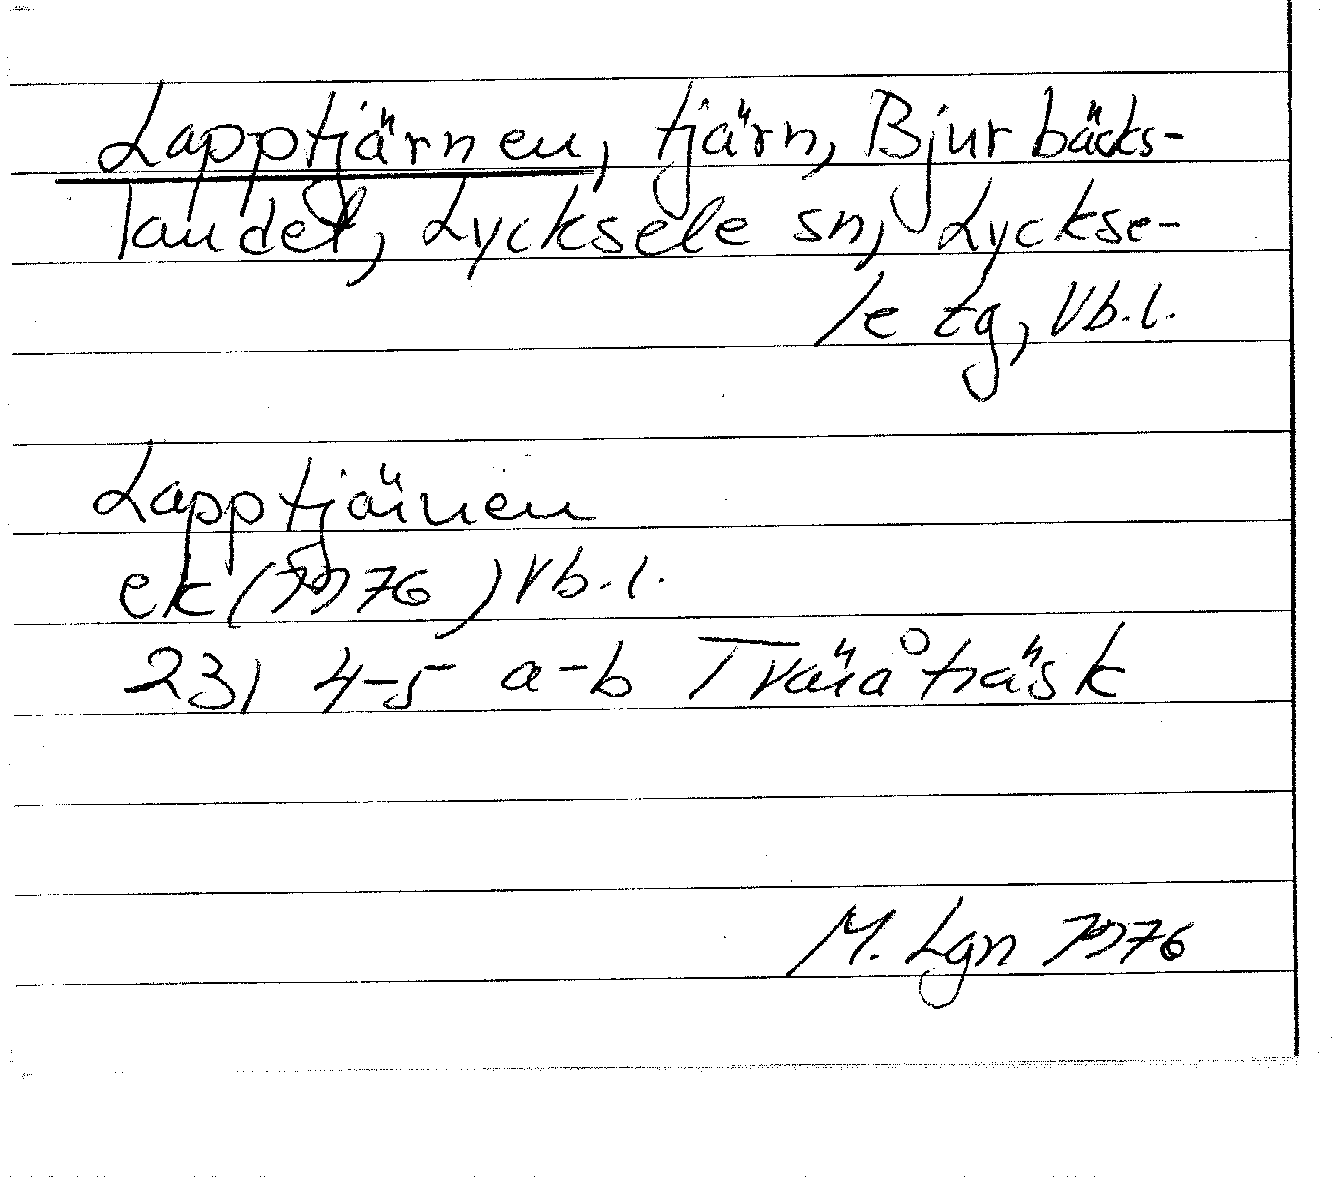 Lapptjärnen, tjärn, Bjurbäcks-
landet, Lycksele sn, Lyckse-
le tg, Vb.l.
Lapptjärnen
ek (1976) Vb.l.
23 I 4-5 a-b Tväråträsk
M. Lgn 1976